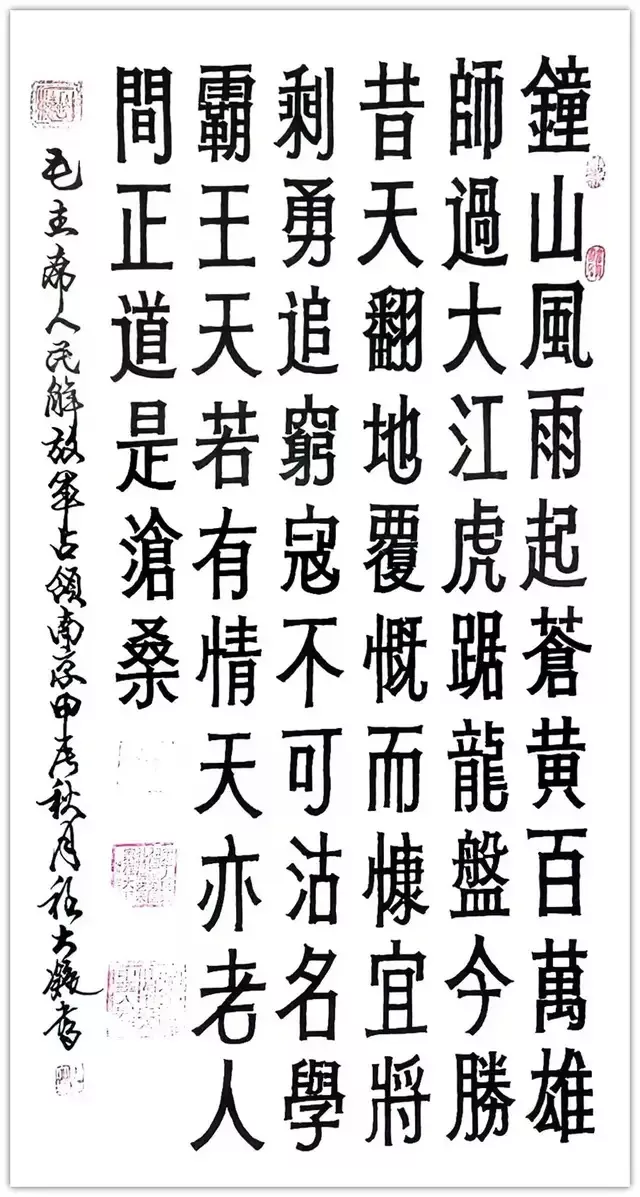 鐘山風雨起蒼黃百萬雄
師過大江虎踞龍盤今勝
昔天翻地覆慨而慷宜將
剩勇追窮寇不可沽名學
霸王天若有情天亦老人
間正道是滄桑
毛主席人民解放軍占領南京甲辰秋月程大書